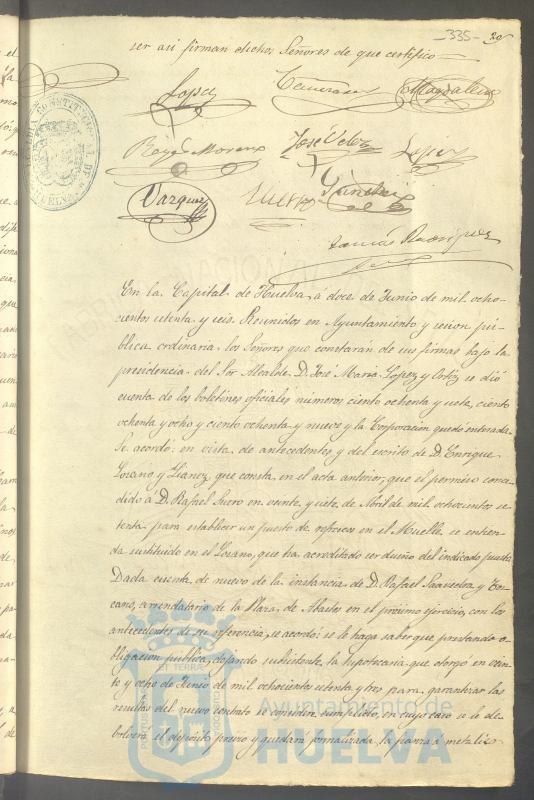 -335- 30
ser asi firman dichos Señores de que certifico
Lopez
Magdalena
Moreno José Velez Lopez
Vazquez Suero Sanchez
Tomás Rodriguez
En la Capital de Huelva á doce de Junio de mil ocho-
cientos setenta y seis. Reunidos en Ayuntamiento y sesion pú-
blica ordinaria los Señores que constarán de sus firmas bajo la
presidencia del Sor Alcalde D. José Maria Lopez y Cortés se dió
cuenta de los boletines oficiales numeros ciento ochenta y siete, ciento
ochenta y ocho y ciento ochenta y nueve y la Corporacion quedo enterada.
Se acordó: en vista de antecedentes y del escrito de D. Enrique
Lozano y que consta en el acta anterior, que el permiso conce-
dido á D. Rafael Suero en veinte y siete de Abril de mil ochocientos se-
tenta para establecer un puesto de refrescos en el Muelle se entien-
da sustituido en el Lozano, que ha acreditado ser dueño del indicado puesto
Dada cuenta de nuevo de la instancia de D. Rafael Saavedra y
arrendatario de la Plaza de Abastos en el prócsimo ejercicio, con los
antecedentes de su referencia, se acordó: se le haga saber que prestando o-
bligacion pública, dejando subsistente la hipotecaria que otorgó en vein-
te y ocho de Junio de mil ochocientos setenta y tres para garantizar las
resultas del nuevo contrato se considera cumplido, en cuyo caso se le de-
bolverá el depósito previo y quedará formalizada la fianza á metalico
CONSTITUCIONAL DE HUELVA
Ayuntamiento de
HUELVA